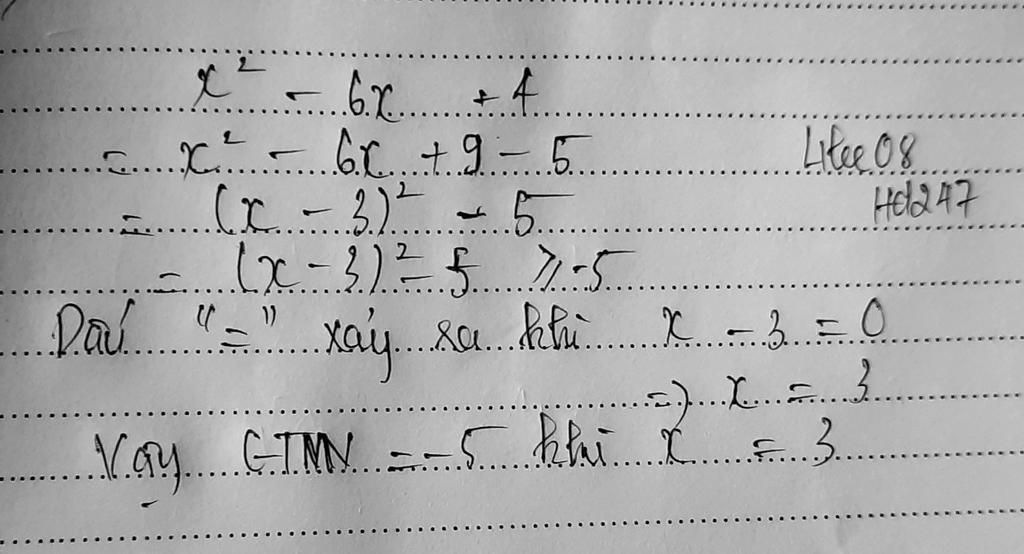 x² - 6x + 4
= x² - 6x + 9 - 5
= (x - 3)² - 5
= (x - 3)² - 5 ⩾ -5
Dấu "=" xảy ra khi x - 3 = 0
=> x = 3
Vậy GTNN = -5 khi x = 3
Hd247